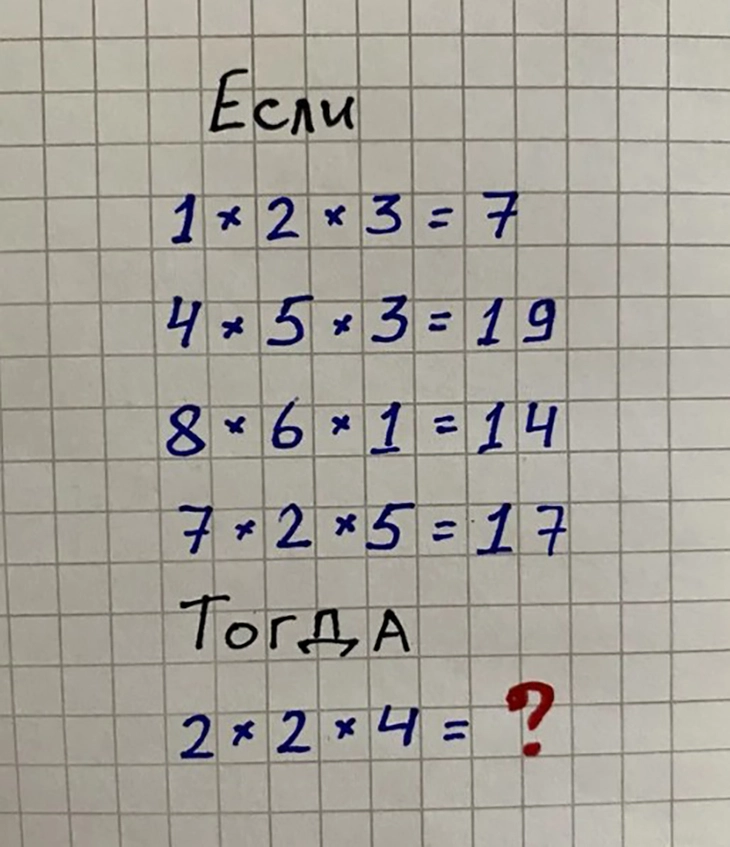 Если
1 × 2 × 3 = 7
4 × 5 × 3 = 19
8 × 6 × 1 = 14
7 × 2 × 5 = 17
Тогда
2 × 2 × 4 = ?